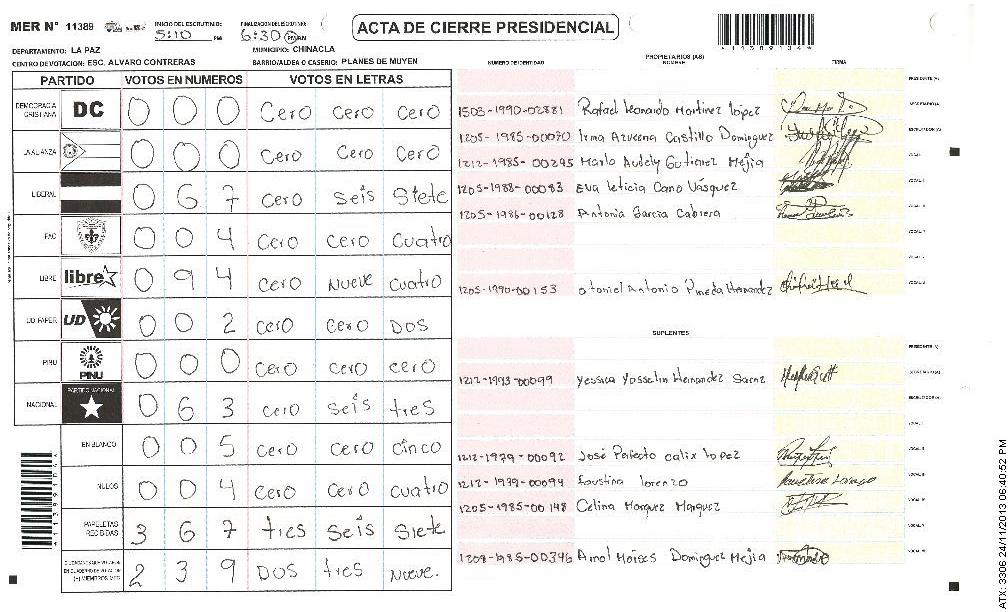 MER N° 11389 INICIO DEL ESCRUTINIO: 5:10 PM FINALIZACION DEL ESCRUTINIO: 6:30 PM
ACTA DE CIERRE PRESIDENCIAL
DEPARTAMENTO: LA PAZ MUNICIPIO: CHINACLA
CENTRO DE VOTACION: ESC. ALVARO CONTRERAS BARRIO/ALDEA O CASERIO: PLANES DE MUYEN
PARTIDO VOTOS EN NUMEROS VOTOS EN LETRAS
DEMOCRACIA CRISTIANA DC 0 0 0 Cero Cero Cero
LA ALIANZA 0 0 0 Cero Cero Cero
LIBERAL 0 6 7 Cero Seis Siete
FAC 0 0 4 Cero Cero Cuatro
LIBRE libre 0 9 4 Cero Nueve Cuatro
UD FAPER UD 0 0 2 Cero Cero Dos
PINU PINU 0 0 0 Cero Cero Cero
NACIONAL PARTIDO NACIONAL 0 6 3 Cero Seis tres
EN BLANCO 0 0 5 Cero Cero Cinco
NULOS 0 0 4 Cero Cero Cuatro
PAPELETAS RECIBIDAS 3 6 7 tres Seis Siete
2 3 9 Dos tres Nueve.
NUMERO DE IDENTIDAD PROPIETARIOS (AS) NOMBRE FIRMA
PRESIDENTE (A)
1503-1990-02881 Rafael Leonardo Martinez Lopez SECRETARIO (A)
1205-1985-00070 Irma Azucena Castillo Dominguez ESCRUTADOR (A)
1212-1985-00295 Marta Audely Gutierrez Mejia
1205-1988-00083 Eva Leticia Cano Vásquez
1205-1986-00128 Antonia Garcia Cabrera
1205-1990-00153 Otoniel Antonio Pineda Hernandez
SUPLENTES
PRESIDENTE (A)
1212-1993-00099 Yessica Yosselin Hernandez Saenz SECRETARIO (A)
ESCRUTADOR (A)
1212-1979-00092 José Perfecto Calix Lopez
1212-1979-00094 Faustina Lorenzo
1205-1985-00148 Celina Marquez Marquez
1208-1985-00346 Arnol Moises Dominguez Mejia
ATX: 3306 24/11/2013 06:40:52 PM